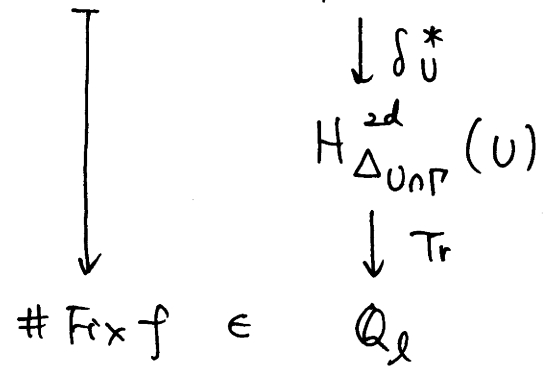 ↓ δ_U^*
H^{2d}_{Δ_{U∩Γ}}(U)
↓ Tr
# Fix f ∈ ℚ_ℓ